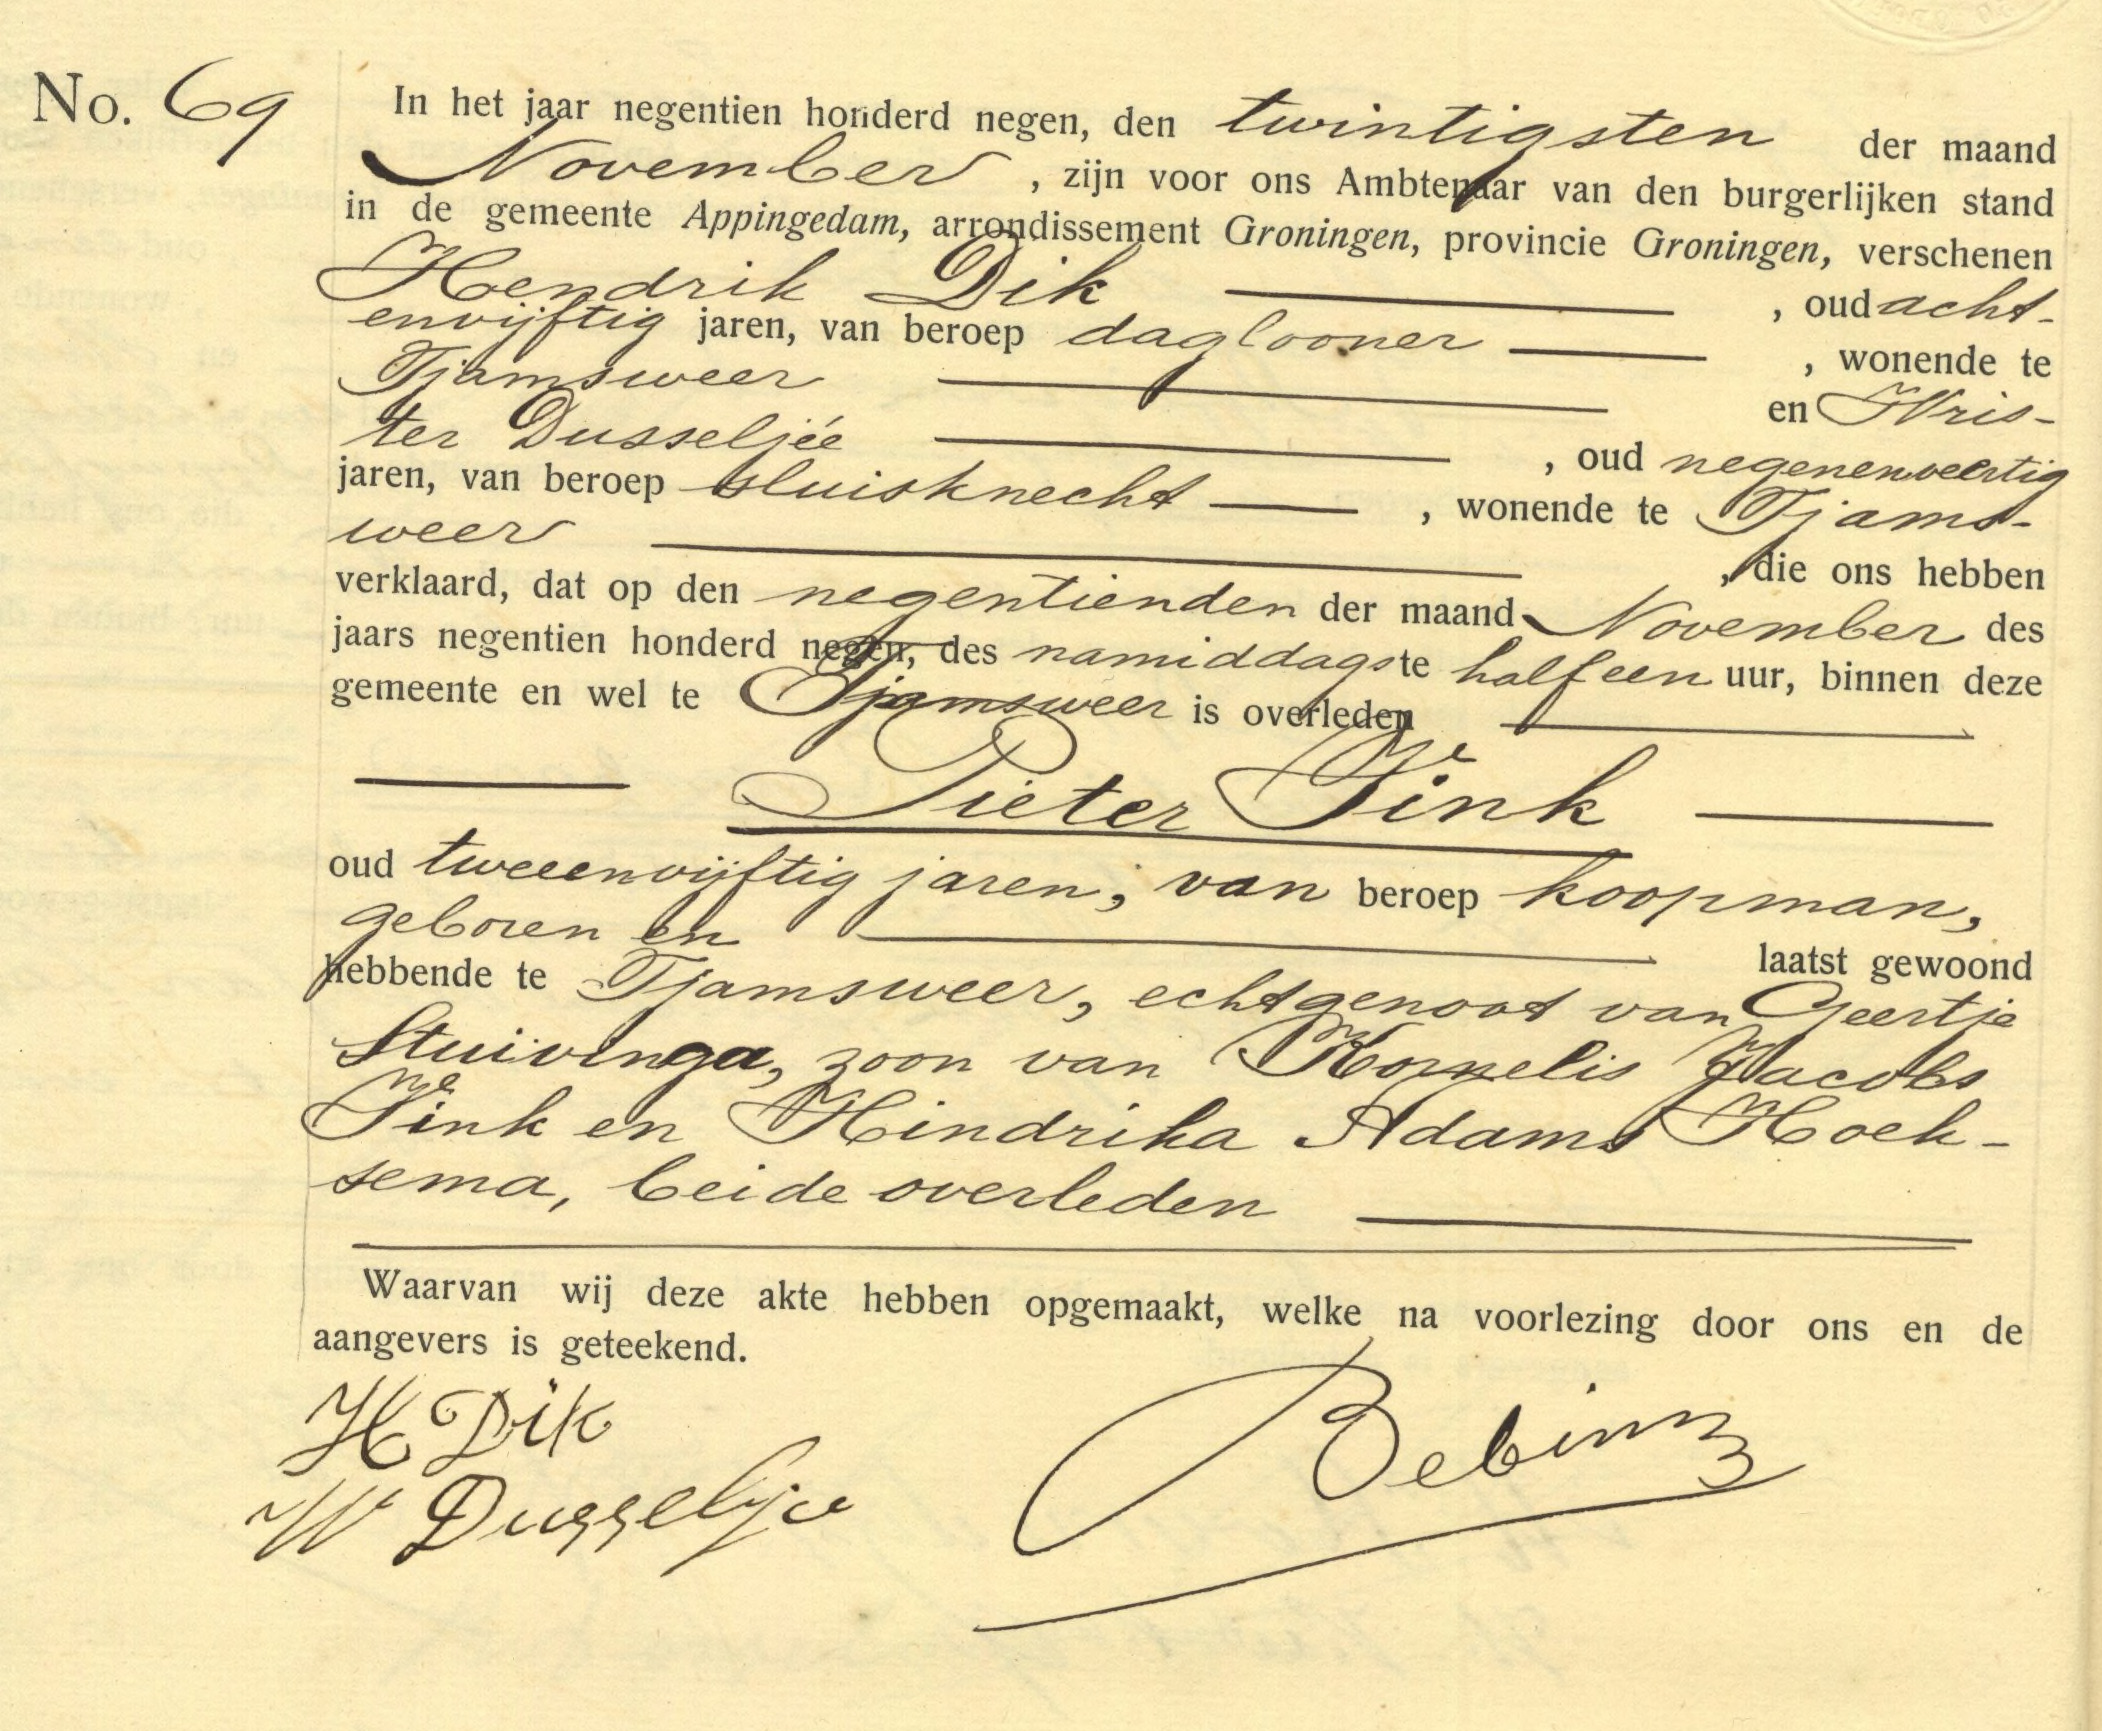 No. 69
In het jaar negentien honderd negen, den twintigsten der maand
November, zijn voor ons Ambtenaar van den burgerlijken stand
in de gemeente Appingedam, arrondissement Groningen, provincie Groningen, verschenen
Hendrik Dik , oud acht-
envijftig jaren, van beroep daglooner , wonende te
Tjamsweer en Wris-
ter Dusseljée , oud negenenveertig
jaren, van beroep sluisknecht , wonende te Tjams-
weer , die ons hebben
verklaard, dat op den negentienden der maand November des
jaars negentien honderd negen, des namiddags te half een uur, binnen deze
gemeente en wel te Tjamsweer is overleden
Pieter Fink
oud tweeenvijftig jaren, van beroep koopman,
geboren en laatst gewoond
hebbende te Tjamsweer, echtgenoot van Geertje
Stuivinga, zoon van Kornelis Jacobs
Fink en Hindrika Adams Hoek-
sema, beide overleden
Waarvan wij deze akte hebben opgemaakt, welke na voorlezing door ons en de
aangevers is geteekend.
H Dik
W Dusseljee